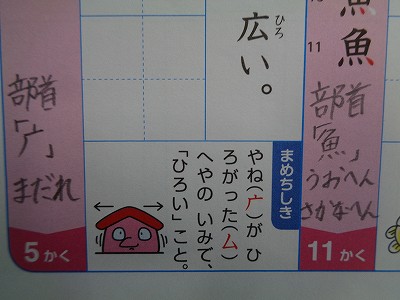 魚
11
魚
部首
「魚」
うおへん
さかなへん
11かく
広い。
ひろ
まめちしき
やね(广)がひ
ろがった(ム)
へやのいみで、
「ひろい」こと。
部首
「广」
まだれ
5かく